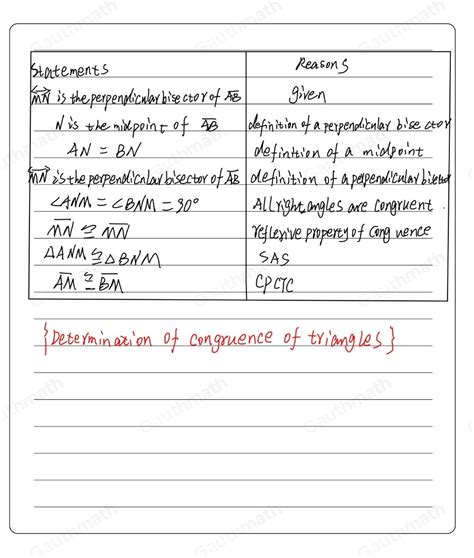 Statements Reasons
MN is the perpendicular bisector of AB given
N is the midpoint of AB definition of a perpendicular bisector
AN = BN definition of a midpoint
MN is the perpendicular bisector of AB definition of a perpendicular
∠ANM = ∠BNM = 90° All right angles are congruent.
MN ≅ MN reflexive property of cong uence
△ANM ≅ △BNM SAS
AM ≅ BM CPCTC
{Determination of congruence of triangles}